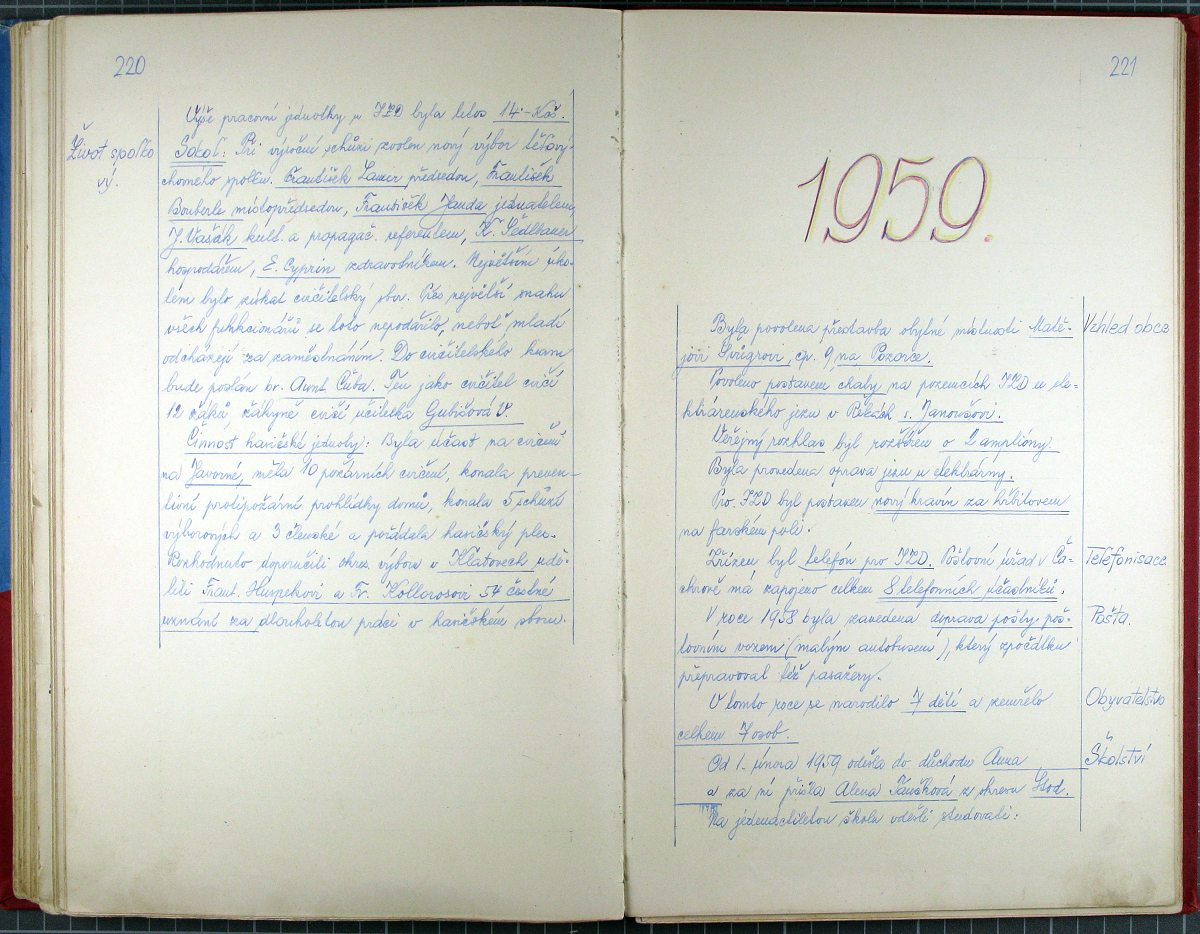 220
Výše pracovní jednotky u JZD byla letos 14.- Kčs.
Život spolko
vý.
Sokol: Při výroční schůzi zvolen nový výbor tělový-
chovného spolku. František Lauer předsedou, František
Bouberle místopředsedou, František Janda jednatelem,
J. Vašák kult. a propagač. referentem, K. Sedlbauer
hospodářem, E. Cyprin zdravotníkem. Největším úko-
lem bylo získat cvičitelský sbor. Přes největší snahu
všech funkcionářů se toto nepodařilo, neboť mladí
odcházejí za zaměstnáním. Do cvičitelského kursu
bude poslán br. Čuba. Ten jako cvičitel cvičí
12 žáků, žákyně cvičí učitelka Gubišová V.
Činnost hasičské jednoty: Byla účast na cvičení
na Javorné, měla 10 požárních cvičení, konala preven-
tivní protipožární prohlídky domů, konala 5 schůzí
výborových a 3 členské a pořádala hasičský ples.
Rozhodnuto doporučiti okres. výboru v Klatovech udě-
liti Frant. Huspekovi a Fr. Kollorosovi 54 čestné
uznání za dlouholetou práci v hasičském sboru.
221
1959.
Byla povolena přestavba obytné místnosti Matě-
jovi Švígrovi, čp. 9, na Pozorce.
Vzhled obce
Povoleno postavení chaty na pozemcích JZD u ele-
ktrárenského jezu v Řekách s. Janoušovi.
Veřejný rozhlas byl rozšířen o 2 ampliony.
Byla provedena oprava jezu u elektrárny.
Pro JZD byl postaven nový kravín za hřbitovem
na farském poli.
Zřízen byl telefón pro JZD. Poštovní úřad v Ča-
Telefonisace
chrově má zapojeno celkem 8 telefonních účastníků.
V roce 1958 byla zavedena doprava pošty poš-
Pošta.
tovním vozem (malým autobusem), který zpočátku
přepravoval též pasažéry.
V tomto roce se narodilo 7 dětí a zemřelo
Obyvatelstvo
celkem 7 osob.
Od 1. února 1959 odešla do důchodu Anna
Školství
a za ní přišla Alena Taušková z okresu Stod.
Na jedenáctiletou školu odešli studovati: